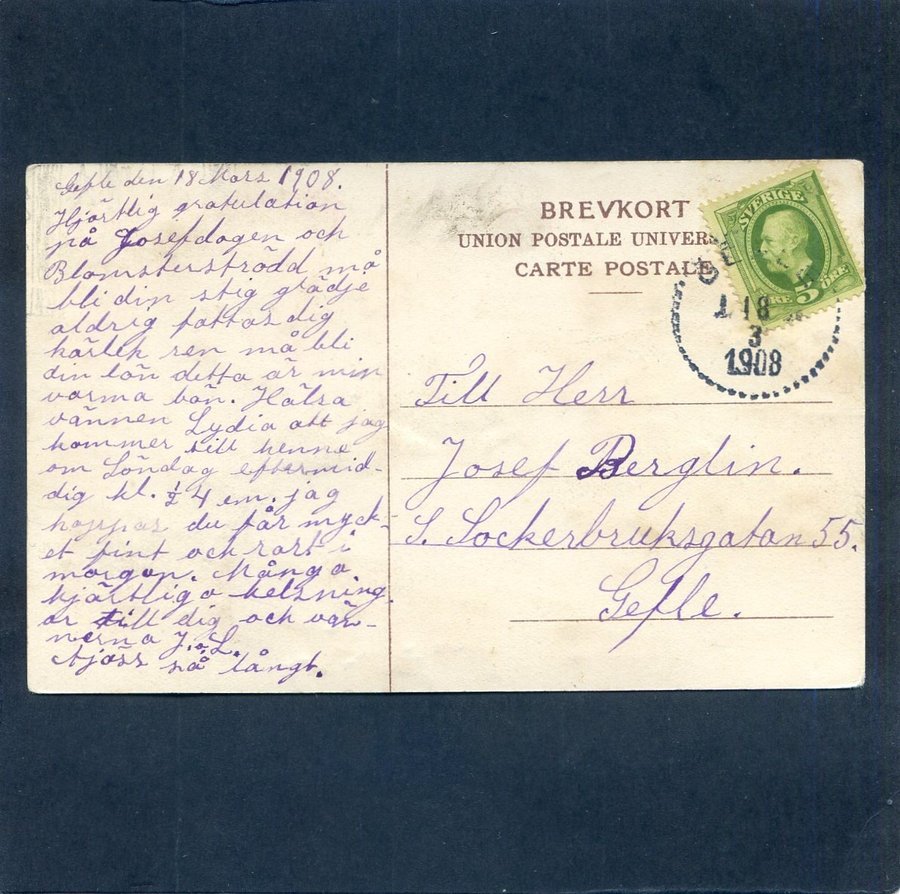 Gefle den 18 Mars 1908.
Hjärtlig gratulation
på Josefdagen och
Blomsterströdd må
bli din stig glädje
aldrig fattas dig
kärlek ren må bli
din lön detta är min
varma bön. Hälsa
vännen Lydia att jag
kommer till henne
om Söndag eftermid-
dig kl. ½ 4 em. jag
hoppas du får myck-
et fint och rart i
morgon. Många
hjärtliga helsning-
ar till dig och vän-
nerna J. o L.
Ajöss så långt.
BREVKORT
UNION POSTALE UNIVERS
CARTE POSTALE
SVERIGE
5
ÖRE
18
3
1908
Till Herr
Josef Berglin.
S. Sockerbruksgatan 55.
Gefle.